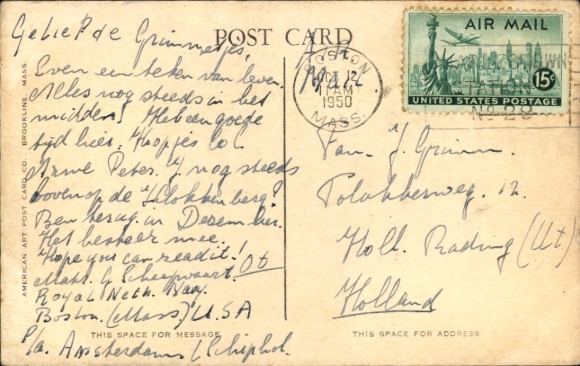 POST CARD
Geliefde Grimmetjes,
Even een teken van leven.
Alles nog steeds in het
midden! Heb een goede
tijd hier. Hoopjes
Peter. J nog steeds
boven op de Klokkenberg?
Ben terug in December.
Het beste mee.
Hope you can read it!
Matr. G. Scheepvaart.
Royal Neth. Navy.
Boston. (Mass) U.S.A
P/a. Amsterdam (Schiphol.
THIS SPACE FOR MESSAGE
AMERICAN ART POST CARD CO. BROOKLINE, MASS.
BOSTON
12
AM
1950
MASS.
AIR MAIL
15¢
UNITED STATES POSTAGE
STATION
No 28
Fam. J. Grimm.
Tolakkerweg. 12
Holl. Rading (Ut)
Holland
THIS SPACE FOR ADDRESS